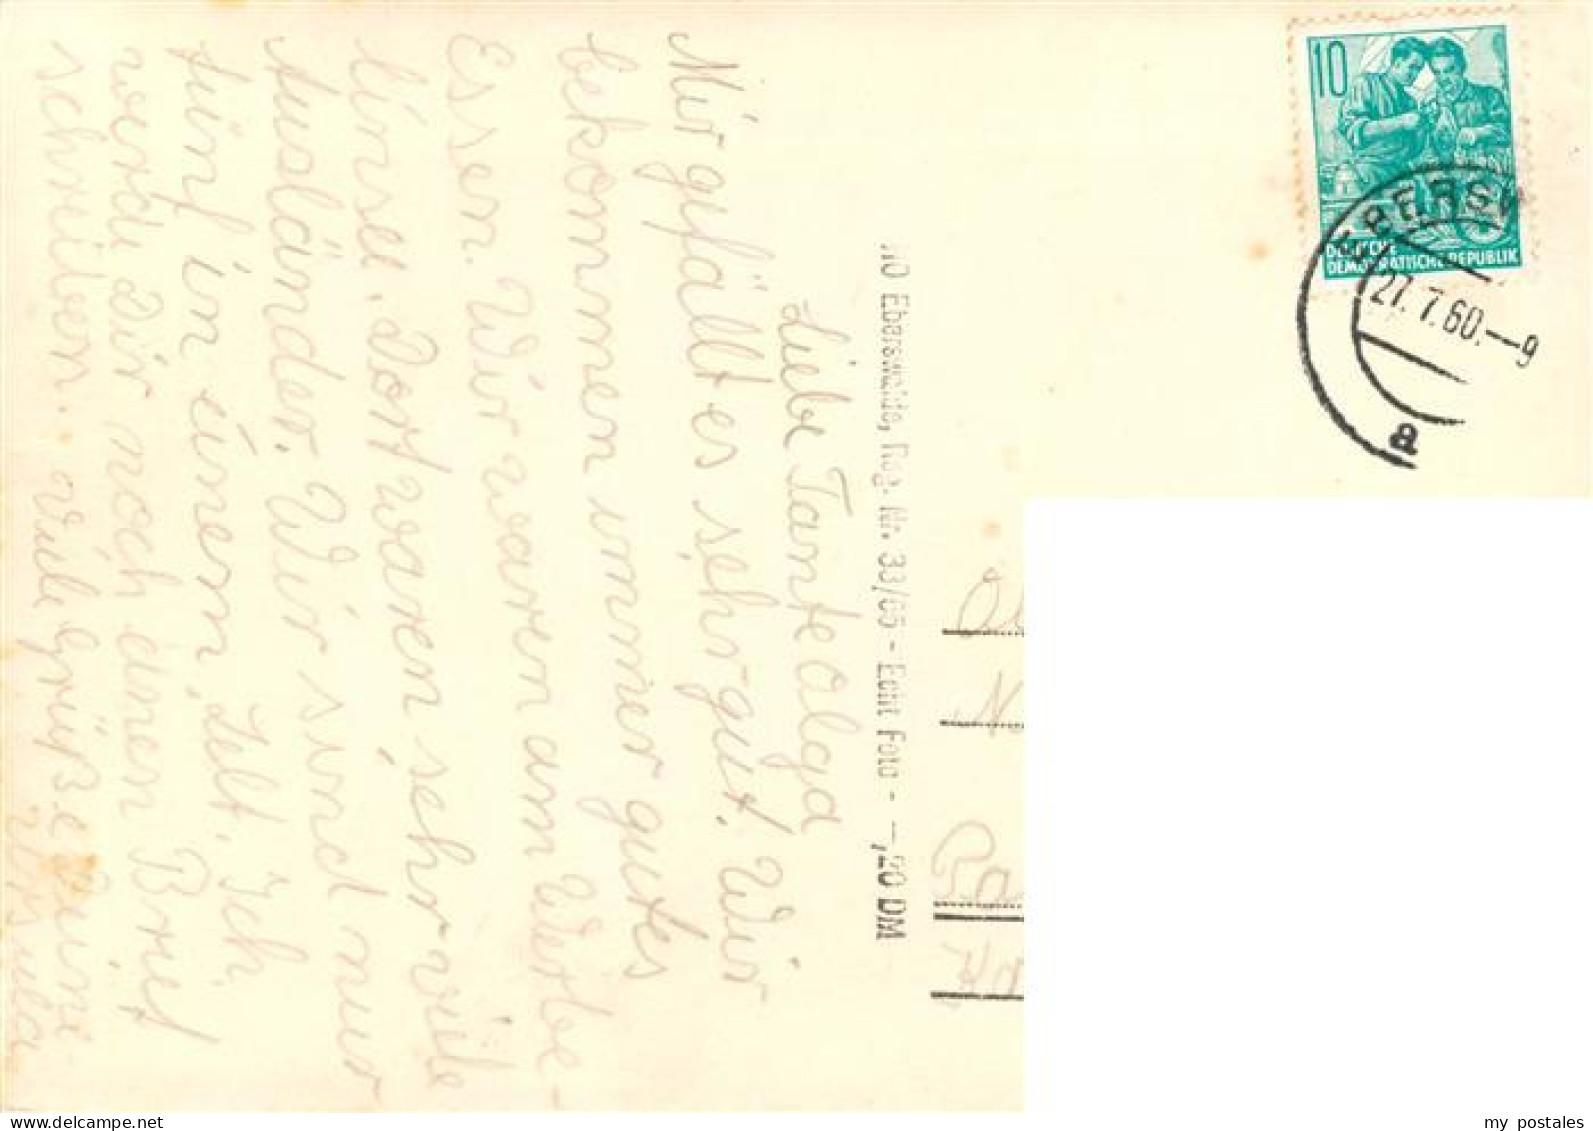 Liebe Tante Olga
Mir gefällt es sehr gut. Wir
bekommen immer gutes
Essen. Wir waren am Werbe-
linsee. Dort waren sehr viele
Ausländer. Wir sind nur
fünf in einem Zelt. Ich
werde Dir noch einen Brief
schreiben. Viele Grüße Deine
Ursula
Eberswalde, Reg. Nr. 33/65 - Echt Foto - —,20 DM
10
DEUTSCHE
DEMOKRATISCHE REPUBLIK
EBERSW
27.7.60.—9
a
my postales
delcampe.net